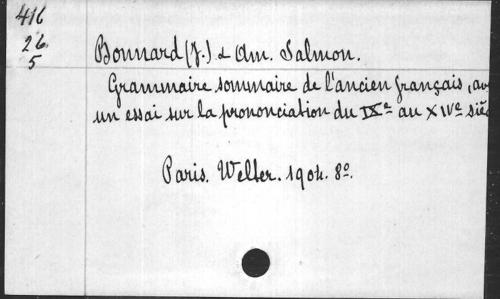 416
26
5
Bonnard (J.) & Am. Salmon.
Grammaire sommaire de l'ancien français, av
un essai sur la prononciation du IXe au XIVe siè
Paris. Welter. 1904. 8o.